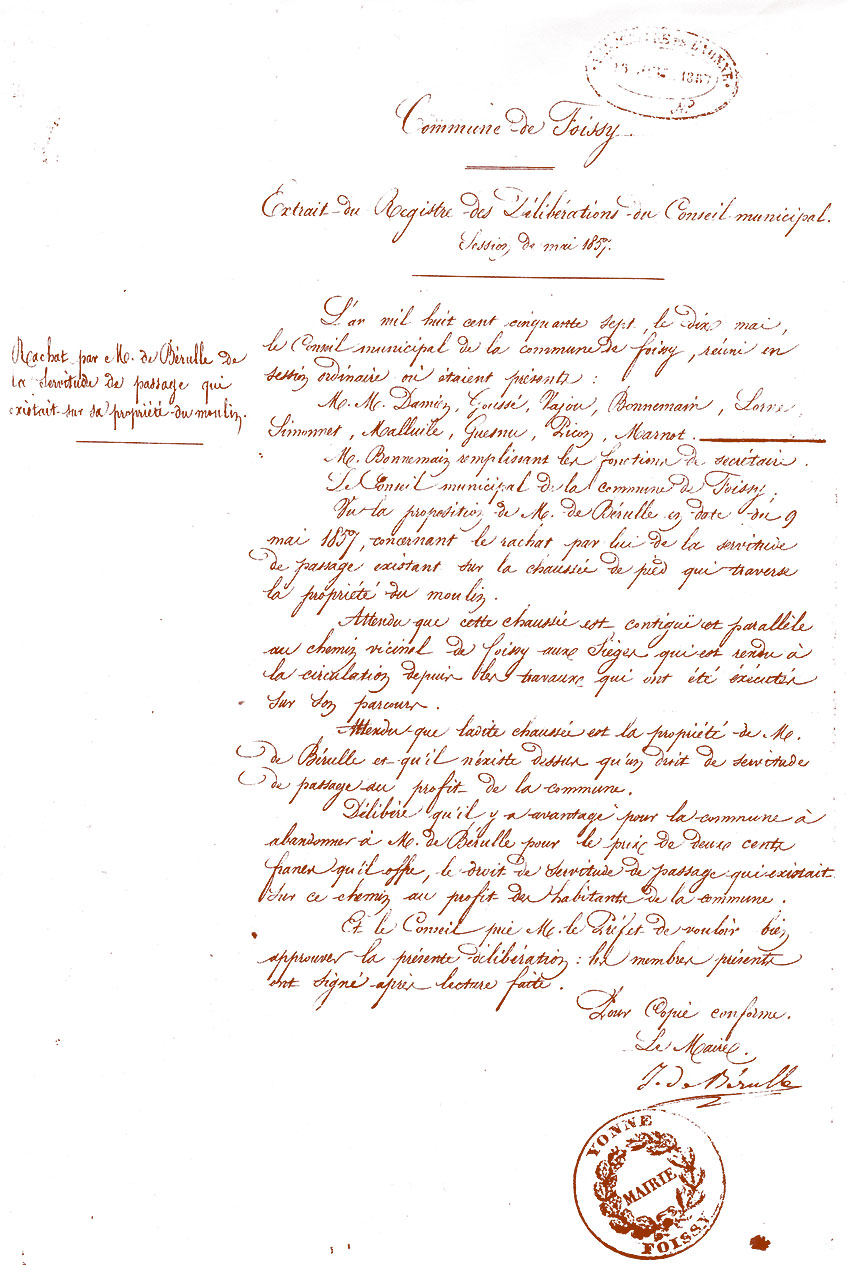 1857
Commune de Foissy
Extrait du Registre des Délibérations du Conseil municipal.
Session de mai 1857.
Rachat par M. de Bérulle de
la servitude de passage qui
existait sur sa propriété du moulin.
L'an mil huit cent cinquante sept, le dix mai,
le Conseil municipal de la commune de foissy, réuni en
session ordinaire où étaient présents :
M. M. Damien, Goussé, Vajou, Bonnemain, Lorne
Simonnet, Malluile, Guesnu, Picon, Marnot.
M. Bonnemain remplissant les fonctions de secrétaire.
Le Conseil municipal de la commune de Foissy;
Vu la proposition de M. de Bérulle en date du 9
mai 1857, concernant le rachat par lui de la servitude
de passage existant sur la chaussée de pied qui traverse
la propriété du moulin.
Attendu que cette chaussée est contiguë et parallèle
au chemin vicinal de foissy aux Sièges qui est rendu à
la circulation depuis les travaux qui ont été éxécutés
sur son parcours.
Attendu que ladite chaussée est la propriété de M.
de Bérulle et qu'il n'éxiste dessus qu'un droit de servitude
de passage au profit de la commune.
Délibère qu'il y a avantage pour la commune à
abandonner à M. de Bérulle pour le prix de deux cents
francs qu'il offre, le droit de servitude de passage qui existait
sur ce chemin au profit des habitants de la commune.
Et le Conseil prie M. le Préfet de vouloir bien
approuver la présente délibération : les membres présents
ont signé après lecture faite.
Pour Copie conforme.
Le Maire.
J. de Bérulle
YONNE
MAIRIE
FOISSY